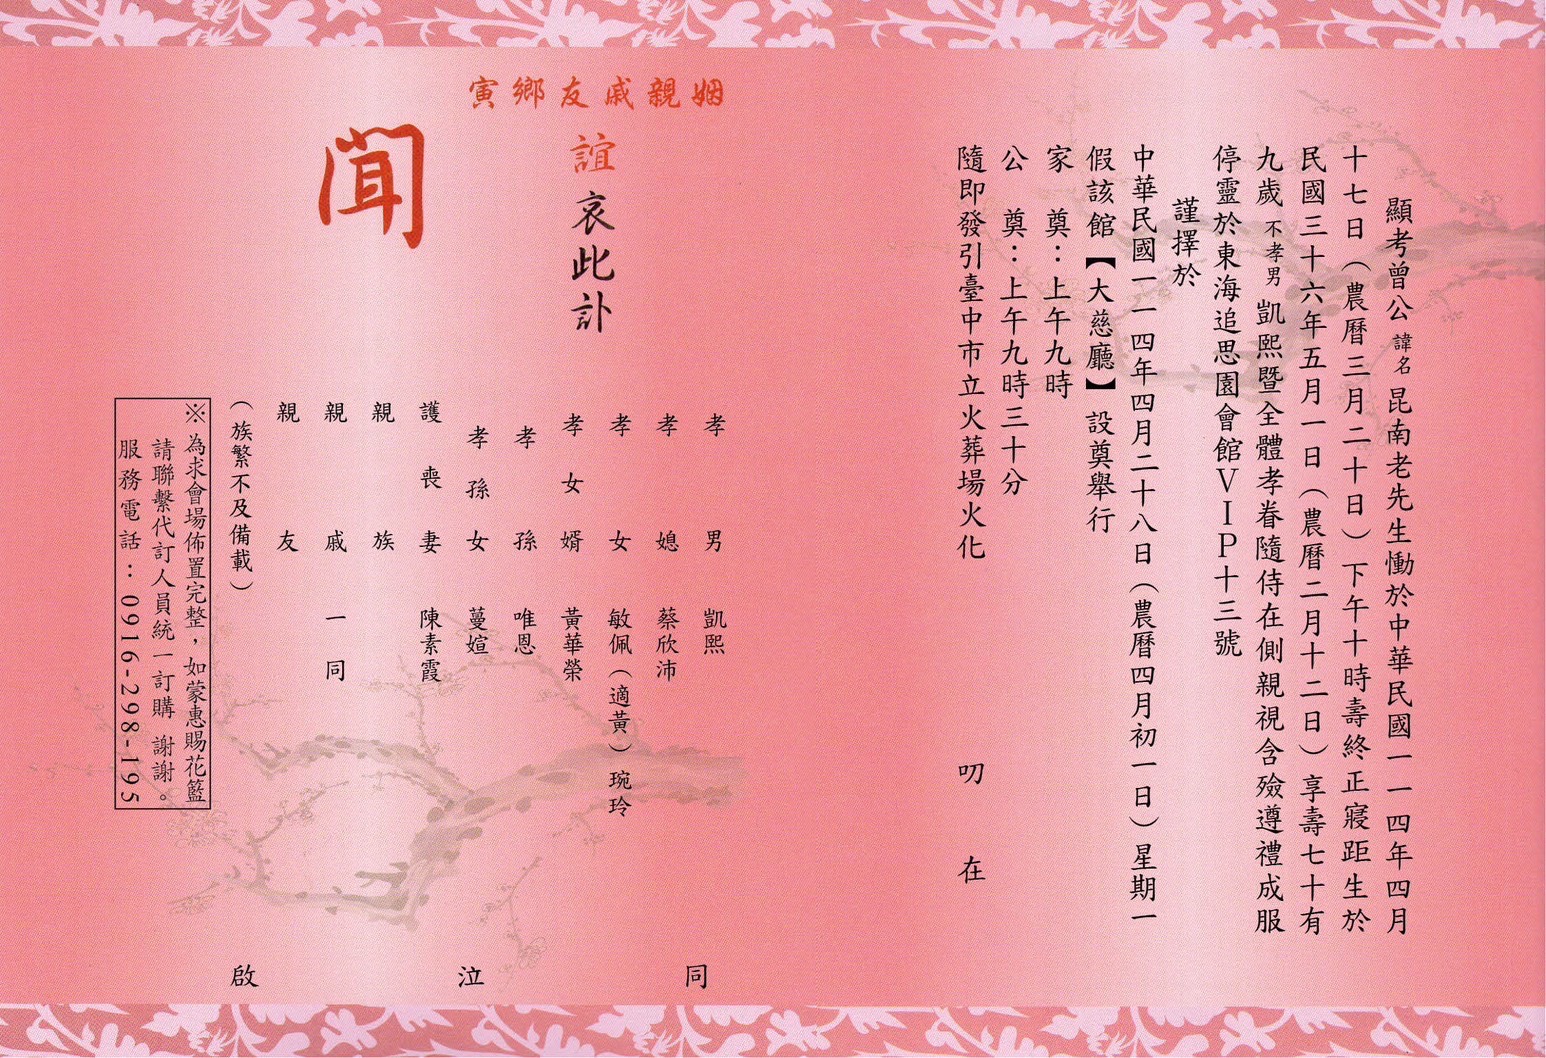 顯考曾公諱名昆南老先生慟於中華民國一一四年四月
十七日（農曆三月二十日）下午十時壽終正寢距生於
民國三十六年五月一日（農曆二月十二日）享壽七十有
九歲不孝男凱熙暨全體孝眷隨侍在側親視含殮遵禮成服
停靈於東海追思園會館ＶＩＰ十三號
謹擇於
中華民國一一四年四月二十八日（農曆四月初一日）星期一
假該館【大慈廳】設奠舉行
家　奠：上午九時
公　奠：上午九時三十分
隨即發引臺中市立火葬場火化
叨　在
姻親戚友鄉寅
誼哀此訃
聞
孝男　凱熙
孝媳　蔡欣沛
孝女　敏佩（適黃）琬玲
孝女婿　黃華榮
孝孫　唯恩
孝孫女　蔓媗
護喪妻　陳素霞
親族
親戚　一同
親友
（族繁不及備載）
同　泣　啟
※為求會場佈置完整，如蒙惠賜花籃
請聯繫代訂人員統一訂購 謝謝。
服務電話：0916-298-195